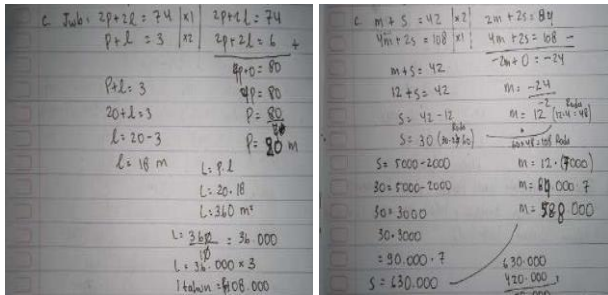 c. Jwb: 2p+2l = 74 | 2p+2l = 74
p+l = 3 |x2| 2p+2l = 6 +
4p+0 = 80
p+l = 3
4p = 80
20+l = 3
p = 80
l = 20-3
p = 20 m
l = 18 m
L = p.l
L = 20.18
L = 360 m²
L = 360 = 36.000
10
L = 36.000 x 3
1 tahun = 108.000
c. m + s = 42 |x2| 2m + 2s = 84
4m + 2s = 108 |x1| 4m + 2s = 108 -
-2m + 0 = -24
m + s = 42
12 + s = 42
m = -24
-2
s = 42 - 12
m = 12 (12.4 = 48)
s = 30
s = 5000 - 2000
m = 12.(7000)
30 = 5000-2000
30 = 3000
30.3000
m = 588.000
= 90.000.7
630.000
s = 630.000
420.000